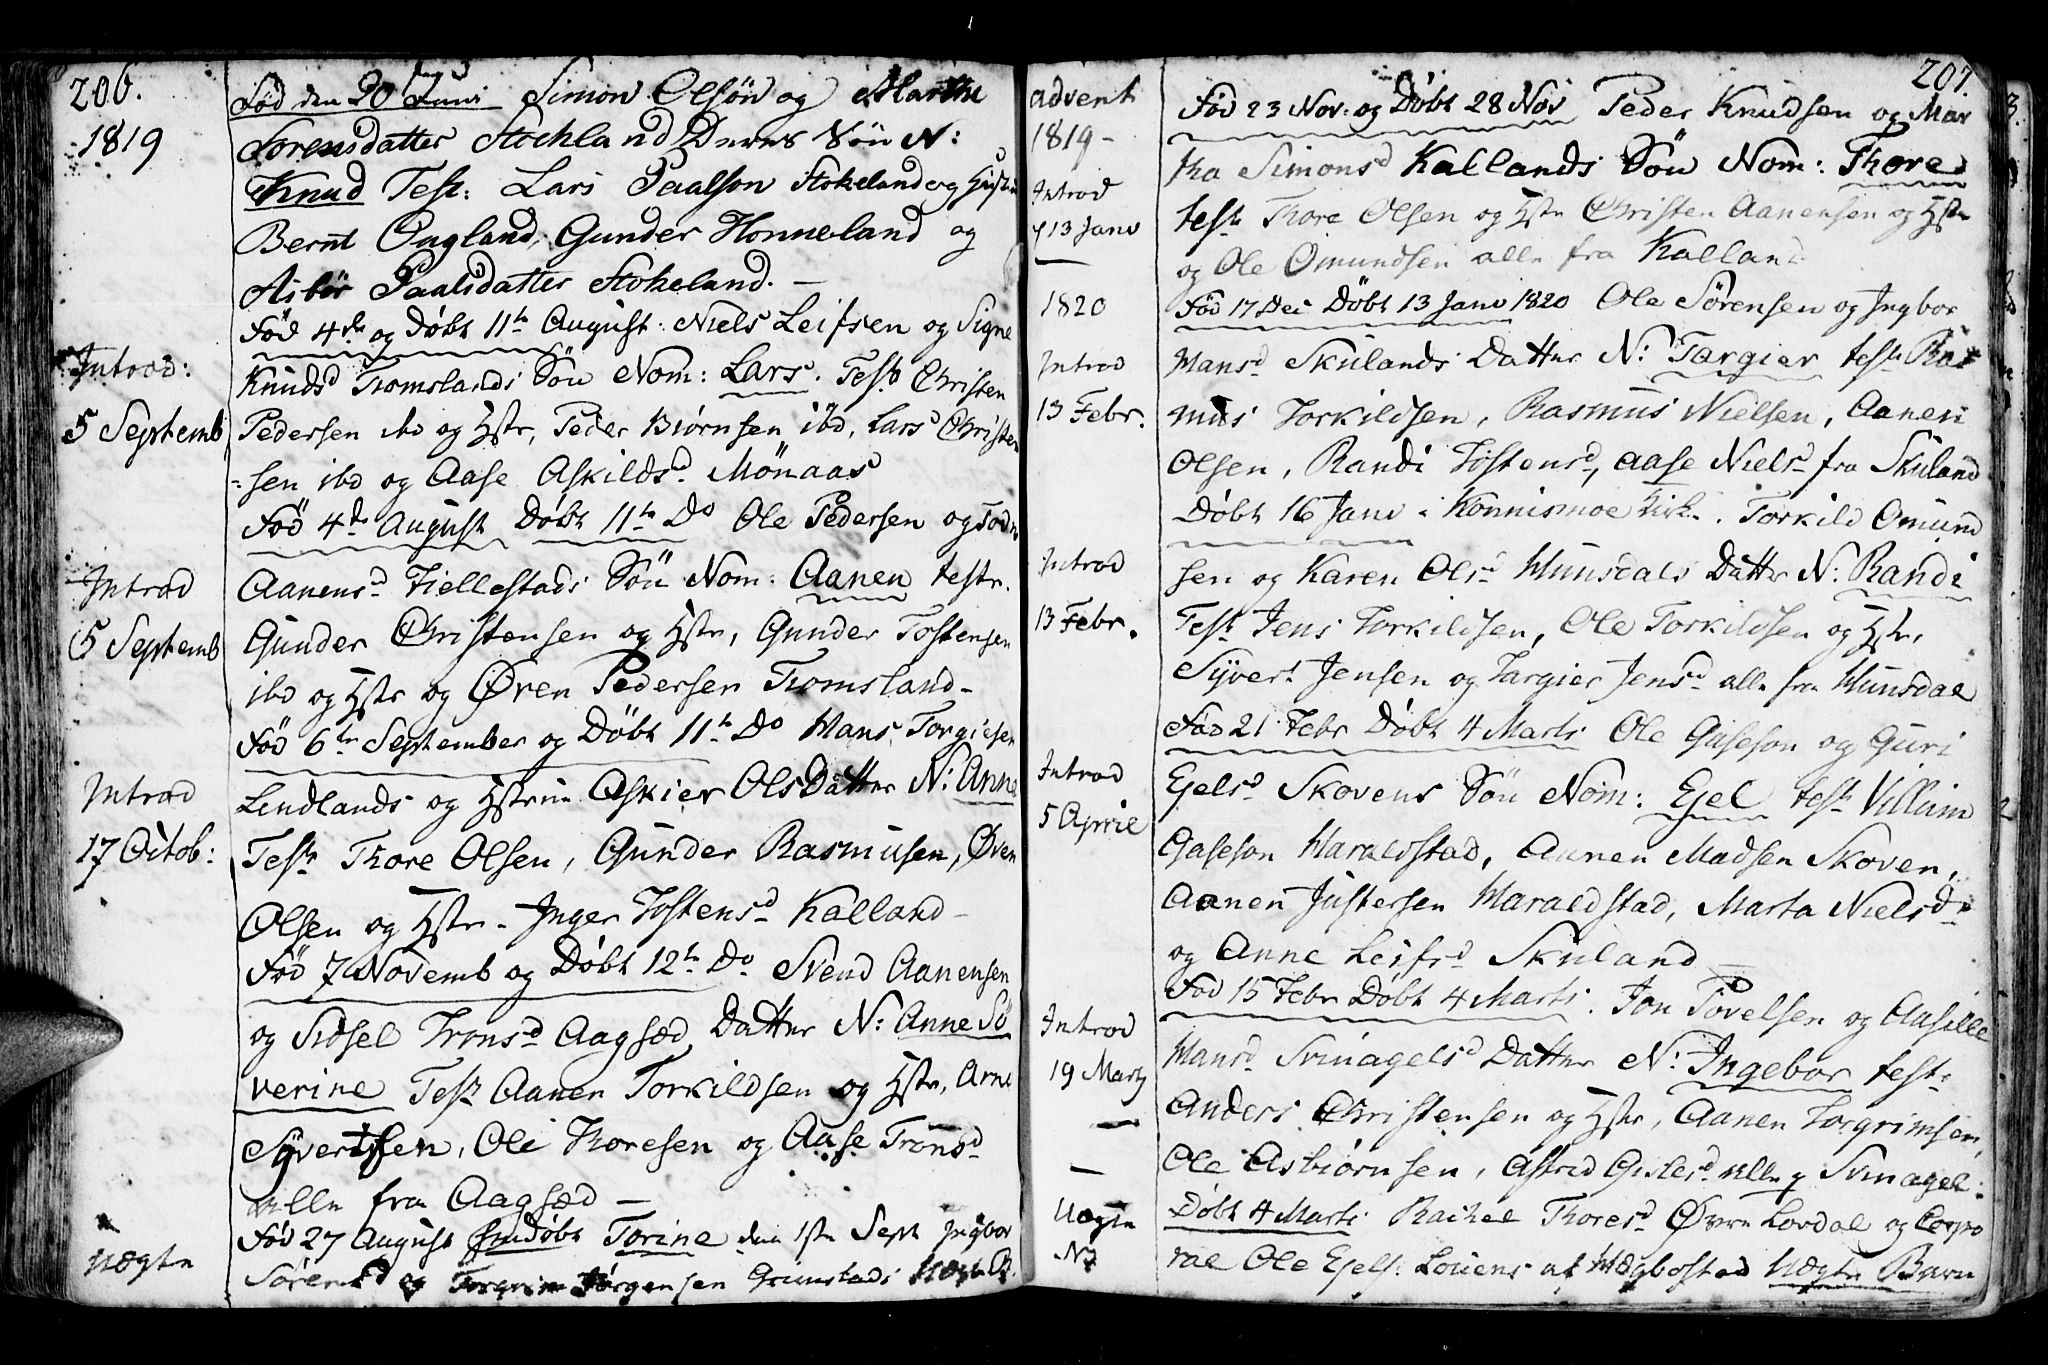 206.
1819
Fød den 20 Juni Simon Olsön og Marthe
Sorensdatter Stochland Deres Sön N:
Knud Test: Lars Paalson Stokeland og Hustru
Bernt Øugland, Gunder Honneland og
Asbör Paalsdatter Stokeland. —
Fød 4de og Døbt 11te August: Niels Leifsen og Signe
Introd:
Knudsd Tromslands Sön Nom: Lars. Test Christen
5 Septemb
Pedersen ibd og Hstr, Peder Biørnsen ibd, Lars Christen
=sen ibd og Aase Askildsd. Mönaas
Fød 4de August Døbt 11te Do Ole Pedersen og
Introd
Aanensd. Fiellestads Sön Nom: Aanen testr.
5 Septemb
Gunder Christensen og Hstr, Gunder Tostensen
ibd og Hstr og Øven Pedersen Tromsland-
Fød 6te September og Døbt 11te Do Hans Torgiesen
Introd
Lendlands og Hstrue Askier Ols Datter N: Anne
17 Octob:
Teste Thore Olsen, Gunder Rasmusen, Øven
Olsen og Hstr. Inger Tostensd. Kalland-
Fød 7 Novemb og Døbt 12te Do Svend Aanensen
og Sidsel Tronsd Aagsæd Datter N: Anne Sö
verine Test Aanen Torkildsen og Hstr, Arne
Syvertsen, Ole Thoresen og Aase Tronsd
alle fra Aagsæd —
Fød 27 August Døbt Torine den 1ste Sept Ingbor
Uægte
Sörensd og Torgrim Jörgensen Grimstads Uægte B.
207.
advent
1819-
Fød 23 Nov: og Døbt 28 Nov Peder Knudsen og Mar
tha Simonsd Kallands Sön Nom: Thore
Introd
13 Janv
test Thore Olsen og Hstr Christen Aanensen og Hstr
og Ole Omundsen alle fra Kalland
1820
Fød 17 Dec Døbt 13 Janv 1820 Ole Sörensen og Ingbor
Introd
Hansd Skulands Datter N: Torgier teste Ras
13 Febr.
mus Torkildsen, Rasmus Nielsen, Aanen
Olsen, Randi Tostensd, Aase Nielsd fra Skuland
Døbt 16 Janv i Konnismoe Kirke. Torkild Omund
Introd
sen og Karen Olsd Hunsdals Datter N: Randi
13 Febr.
Test Jens Torkildsen, Ole Torkildsen og Hstr,
Syvert Jensen og Targier Jensd alle fra Hunsdal
Fød 21 Febr Døbt 4 Marti Ole Gaseson og Guri
Introd
Ejelsd Skovens Sön Nom: Ejel test Villum
5 Aprile
Gaseson Haraldstad, Aanen Madsen Skoven,
Aanen Justersen Haraldstad, Marta Nielsd
og Anne Leifsd Skuland —
Fød 15 Febr Døbt 4 Marti. Jon Povelsen og Aasille
Introd
Hansd Svinagelsd Datter N: Ingebor test:
19 Marty
Anders Christensen og Hstr, Aanen Torgrimsen,
Ole Asbiörnsen, Astred Gislesd alle p Svinagel:
Uægte
Døbt 4 Marti Rachel Thoresd Øvre Lordal og Corpo
rae Ole Ejels: Louens af Hægbostad Uægte Barn